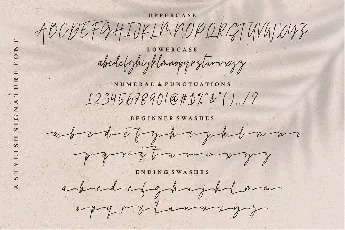 A STYLISH SIGNATURE FONT
UPPERCASE
ABCDEFGHIJKLMNOPQRSTUVWXYZ
LOWERCASE
abcdefghijklmnopqrstuvwxyz
NUMERAL & PUNCTUATIONS
BEGINNER SWASHES
a b c d e f g h i j k l m n o
p q r s t u v w x y z
ENDING SWASHES
a b c d e f g h i j k l m n
o p q r s t u v w x y z